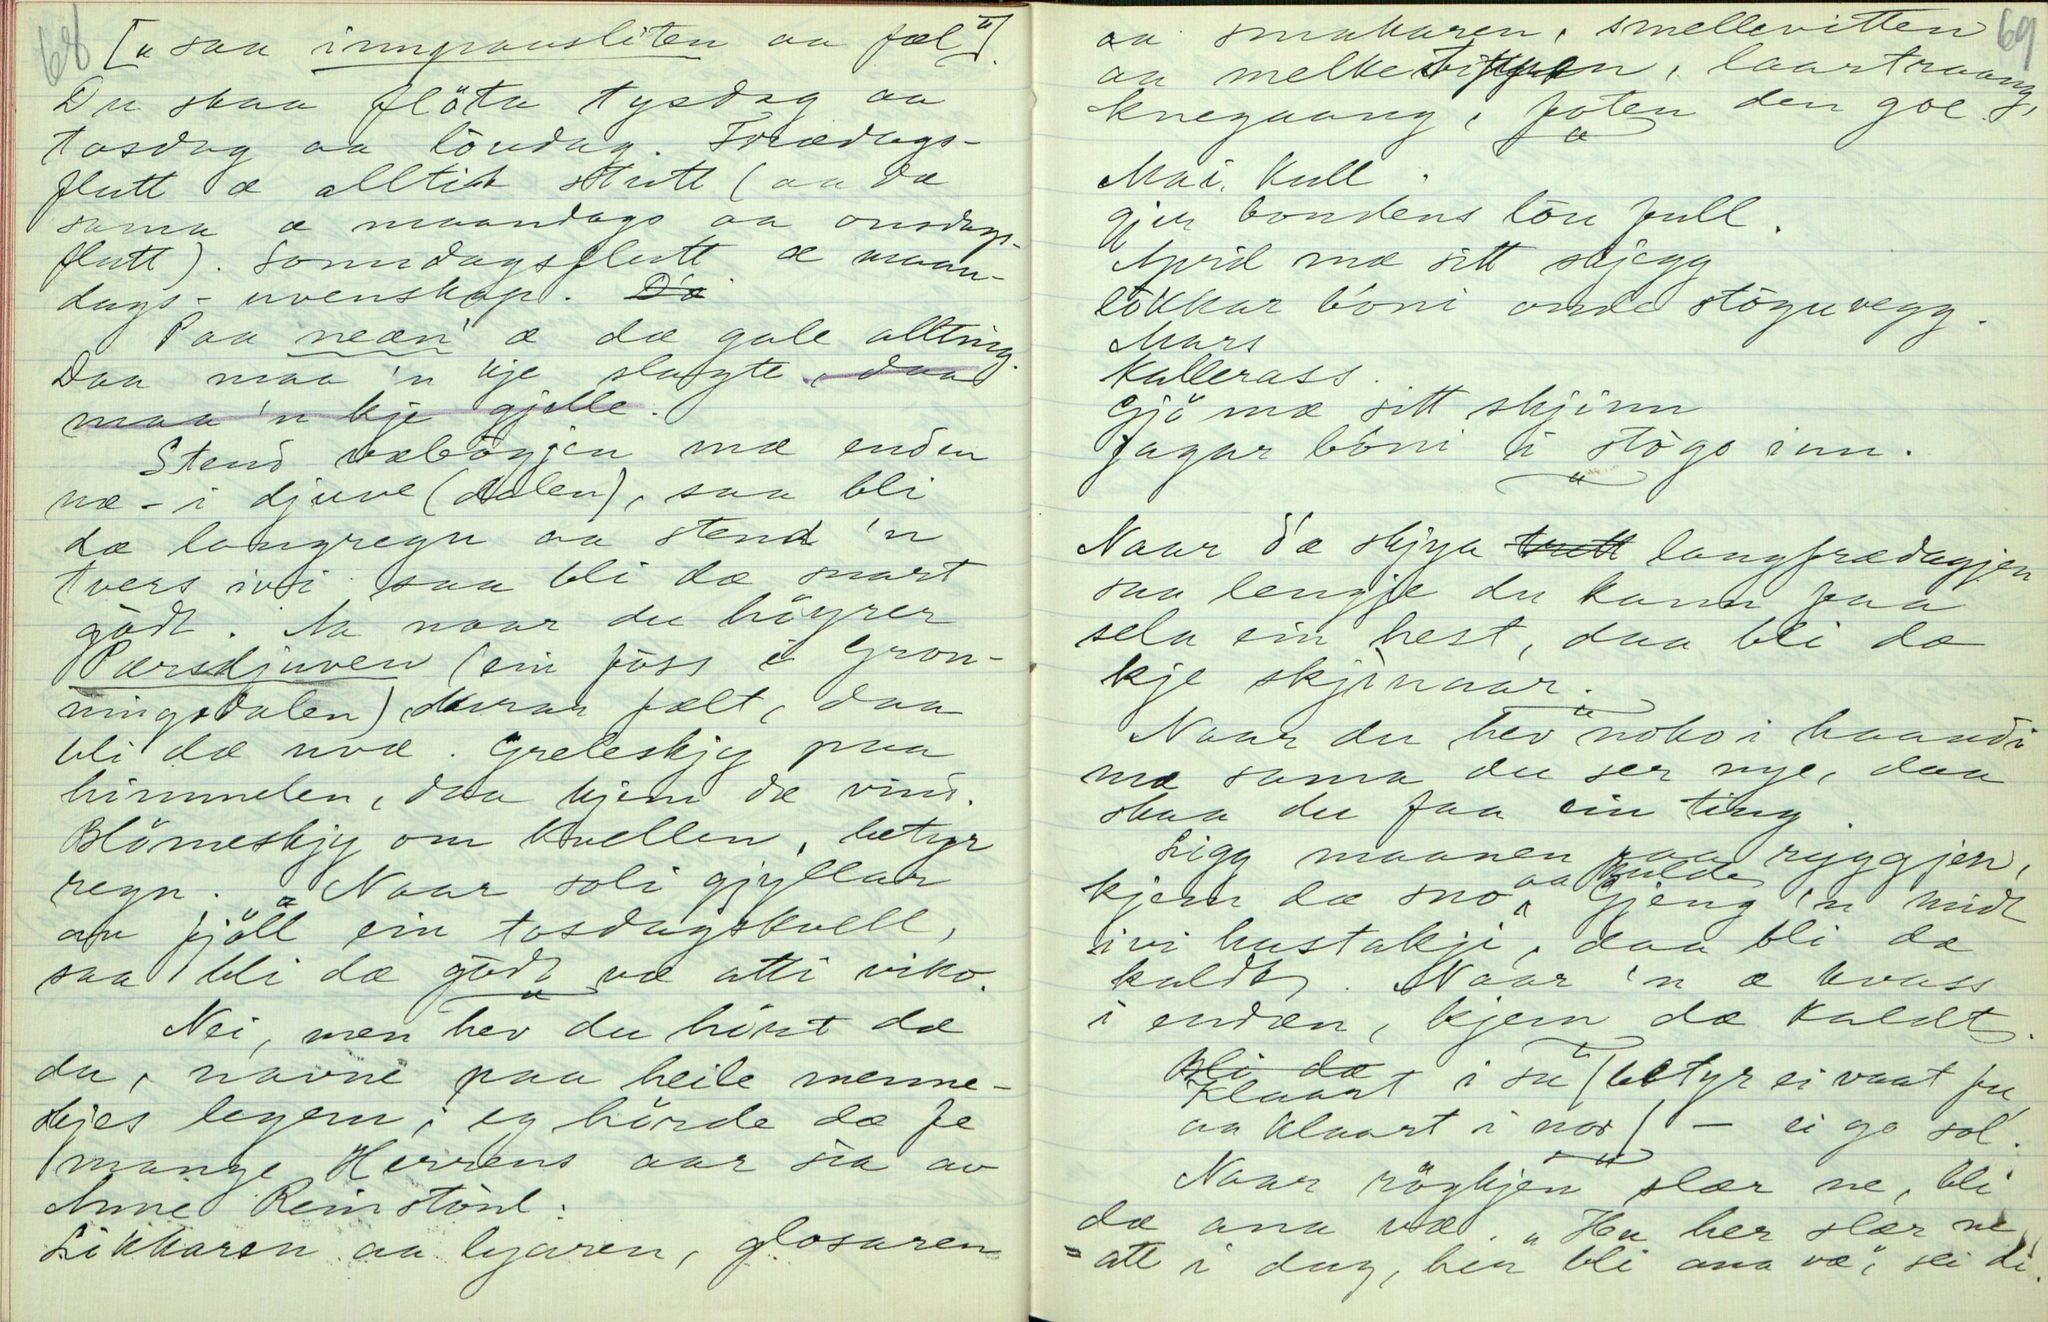 68
["saa inngrausliten aa fæl"].
Du skaa flöta tysdag aa
tosdag aa löudag. Frædags-
flutt æ alltid stutt (aa da
sama æ maandags aa onsdags-
flutt). Sonndagsflutt æ maan-
dags-uvenskap. Dæ
Paa neæn æ dæ gale allting.
Daa maa 'n kje slagte, daa
maa 'n kje gjelle.
Stend væbögjen mæ enden
næ-i djuve (dalen), saa bli
dæ langregn aa stend 'n
tvers ivi saa bli dæ snart
godt. Aa naar du höyrer
Pærsdjuven (ein foss i Gron-
ningsdalen) durar fælt, daa
bli dæ uvæ. Greleskjy paa
himmelen, daa kjem dæ vind.
Blömeskjy om kvellen, betyr
regn. "Naar soli gjyllar
au fjöll ein tosdagskvell,
saa bli dæ godt væ atti viko.
Nei, men hev du hört dæ
du, navni paa heile menne-
skjes legem, eg hörde dæ fe
mange Herrens aar sia av
Anne Reinstönl:
Likkaren aa lyaren, glosaren
69
aa smakaren, smellevitten
aa melkevitten, laartraang,
knegaang, foten den goe.
Mai. Kull
gjer bondens löu full.
April mæ sitt skjegg
lokkar boni onde stoguvegg.
Mars
Kallerass.
Gjö mæ sitt skjinn
jagar boni i stogo inn.
Naar dæ skjya trutt langfrædagjen
saa lengje du kann faa
sela ein hest, daa bli dæ
kje skjinaar.
Naar du hev noko i haandi
mæ sama du ser nye, daa
skaa du faa ein ting.
Ligg maanen paa ryggjen,
kjem dæ sno aa kulde. Gjeng 'n midt
ivi hustakji, daa bli dæ
kaldt. Naar 'n æ kvass
i enden, kjem dæ kaldt.
Bli dæ
Klaart i su (betyr ei vaat fu
aa klaart i nor) - ei go sol.
Naar röykjen slær ne, bli
dæ ana væ. "Hu her slær ne
att i dag, her bli ana væ", sei di.